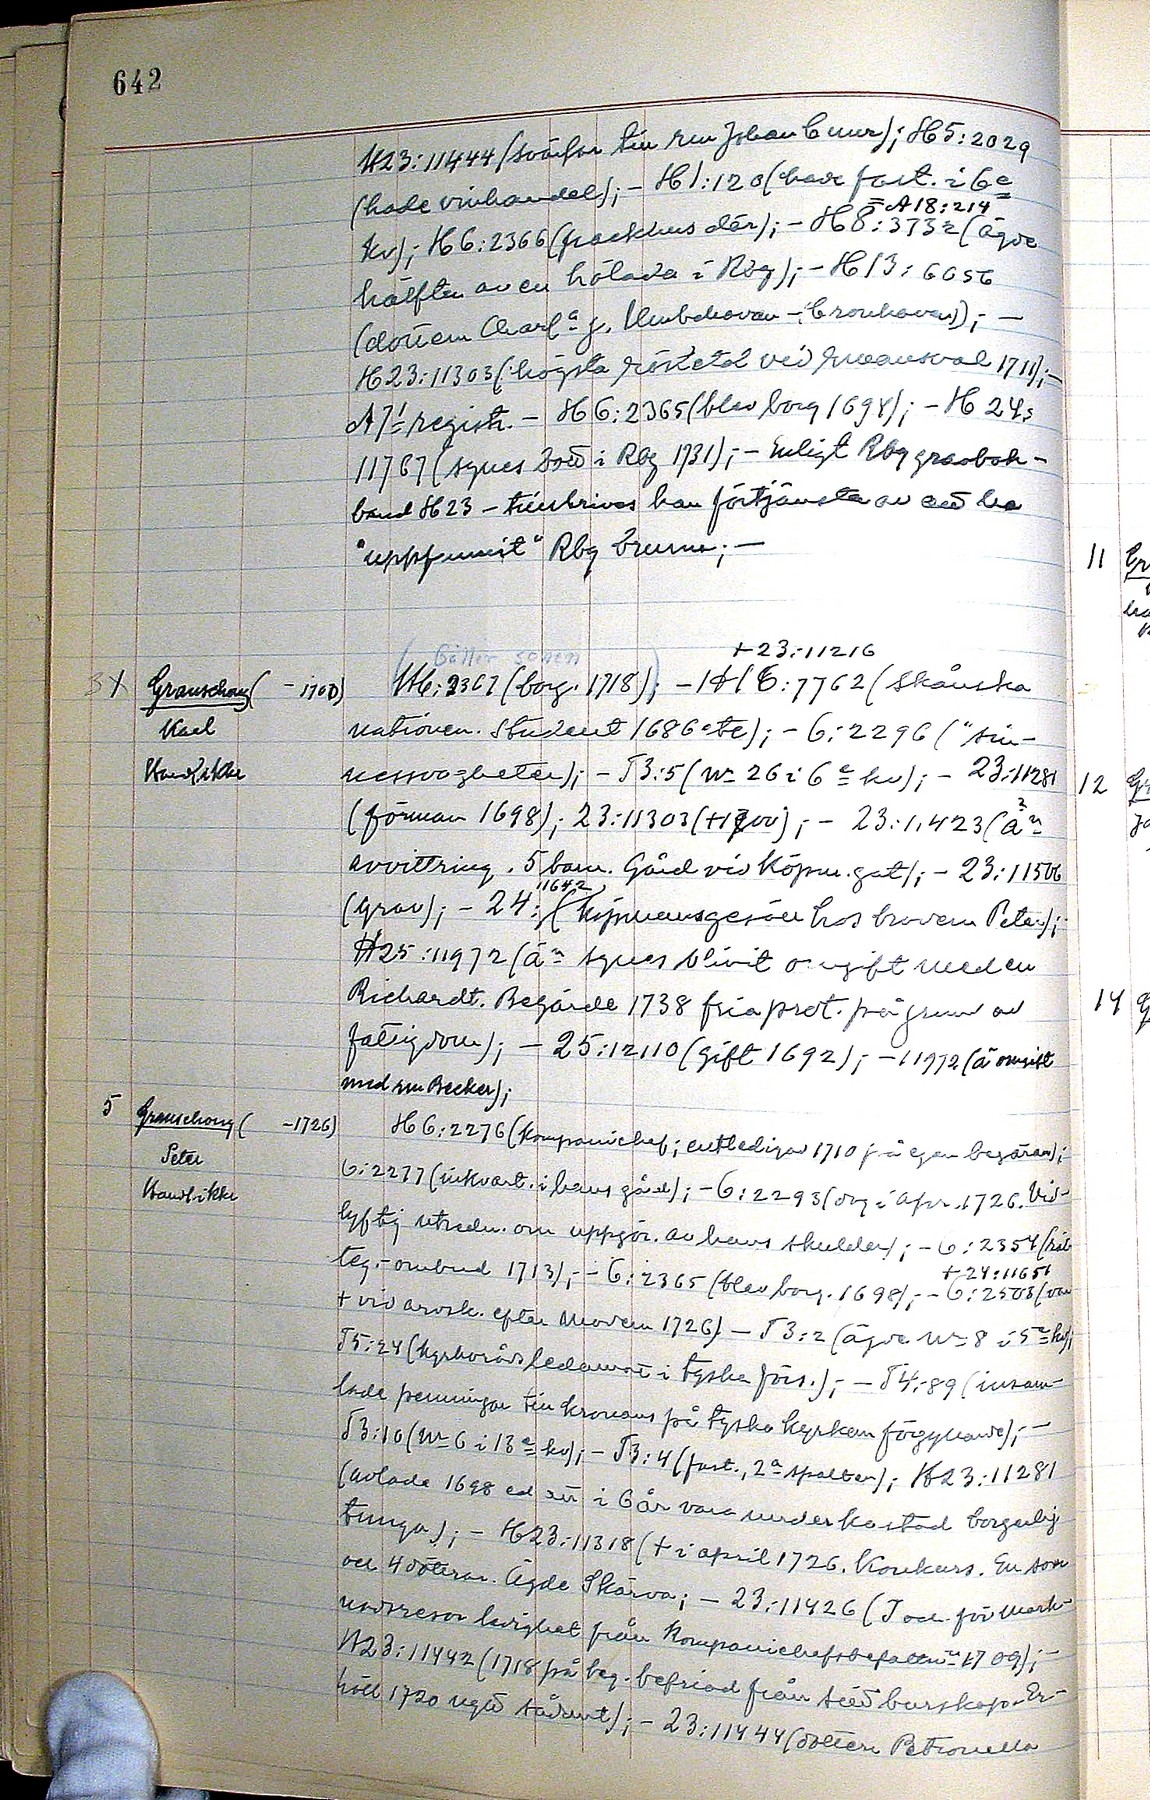 642
H23:11444 (svärfar till rm Johan Cuur); H5:2029
(hade vinhandel); - H1:120 (hade fast. i 6e
= A18:214
kv); H6:2366 (packhus där); - H8:3732 (ägde
hälften av en hölada i Rbg); - H13:6656
(dottern Charl:a g. - Cronhaven); -
H23:11303 (högsta röstetal vid 1711); -
A71 registr. - H6:2365 (blev borg 1698); - H24:
11767 (synes död i Rbg 1731); - Enligt Rbg gravbok -
band H23 - tillskrives han förtjänsten av att ha
"uppfunnit" Rbg brunn; -
(Gäller sonen)
+23:11216
3X Grauschoug ( -1700) H6:2367 (borg. 1718); - H16:7762 (Skånska
Karl nationen. Student 1686 etc); - 6:2296 ("sin-
Handl ikke nessvagheter); - T3:5 (No 26 i 6e kv); - 23:11281
(förman 1698); 23:11303 (+1700); - 23:11423 (än
avvittring. 5 barn. Gård vid Köpm. gat); - 23:11506
11642
(grav); - 24: (köpmansgesäll hos brodern Peter);
H25:11972 (än synes blivit omgift med en
Richardt. Begärde 1738 fria prot. på grund av
fattigdom); - 25:12110 (gift 1692); - 11972 (ä omgift
med rm Becker);
5 Grauschoug ( -1726) H6:2276 (Kompanichef; entledigad 1710 på egen begäran);
Peter 6:2277 (inkvart. i hans gård); - 6:2293 (dog i apr. 1726. Vid-
Handl ikke lyftig utredn. om uppgör. av hans skulder); - 6:2354 (råd-
+24:11651
teg.-ombud 1713); - 6:2365 (blev borg. 1698); - 6:2503 (var
+ vid arvsk. efter modern 1726) - T3:2 (ägde No 8 i 5e kv);
T5:24 (kyrkorådsledamot i tyska förs.); - T4:89 (insam-
lade penningar till kronans på tyska kyrkan förgyllande); -
T3:10 (No 6 i 13e kv); - T3:4 (fast., 2a spalten); H23:11281
(avlade 1698 ed att i 6 år vara underkastad borgerlig
tunga); - H23:11318 (+ i april 1726. Konkurs. En son
och 4 döttrar. Ägde Skärva; - 23:11426 (T och för mark-
nadsresor ledighet från Kompanichefsbefattn. 1709); -
H23:11442 (1718 på beg. befriad från stadsburskap. Er-
höll 1720 nytt sådant); - 23:11444 (dottern Petronella
11
12
14